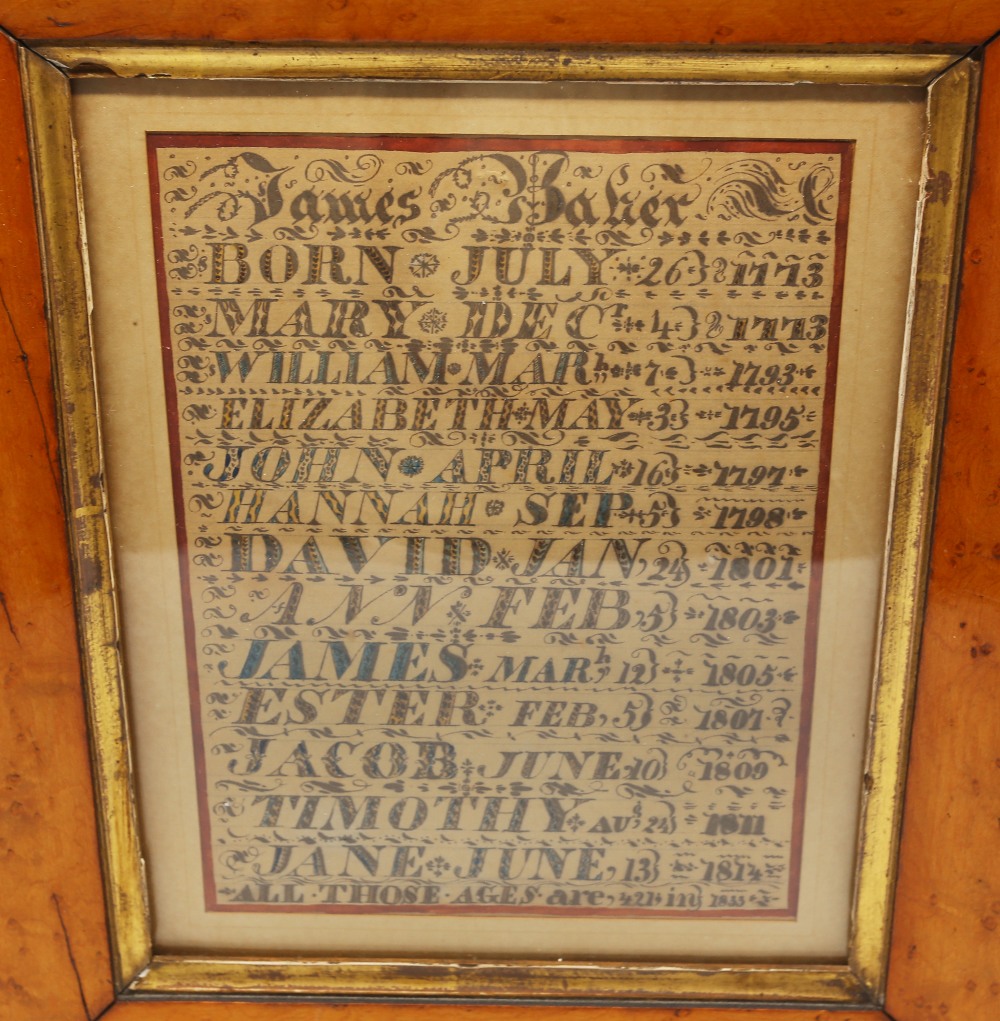 James Baker
BORN JULY 26 1773
MARY DECr 4 1773
WILLIAM MARh, 7 1793
ELIZABETH MAY 3 1795
JOHN APRIL 16 1797
HANNAH SEP 5 1798
DAVID JAN, 24 1801
ANN FEB, 5 1803
JAMES MARh, 12 1805
ESTER FEB, 5 1807
JACOB JUNE 10 1809
TIMOTHY AUg 24 1811
JANE JUNE, 13 1814
ALL THOSE AGES are, 421 in